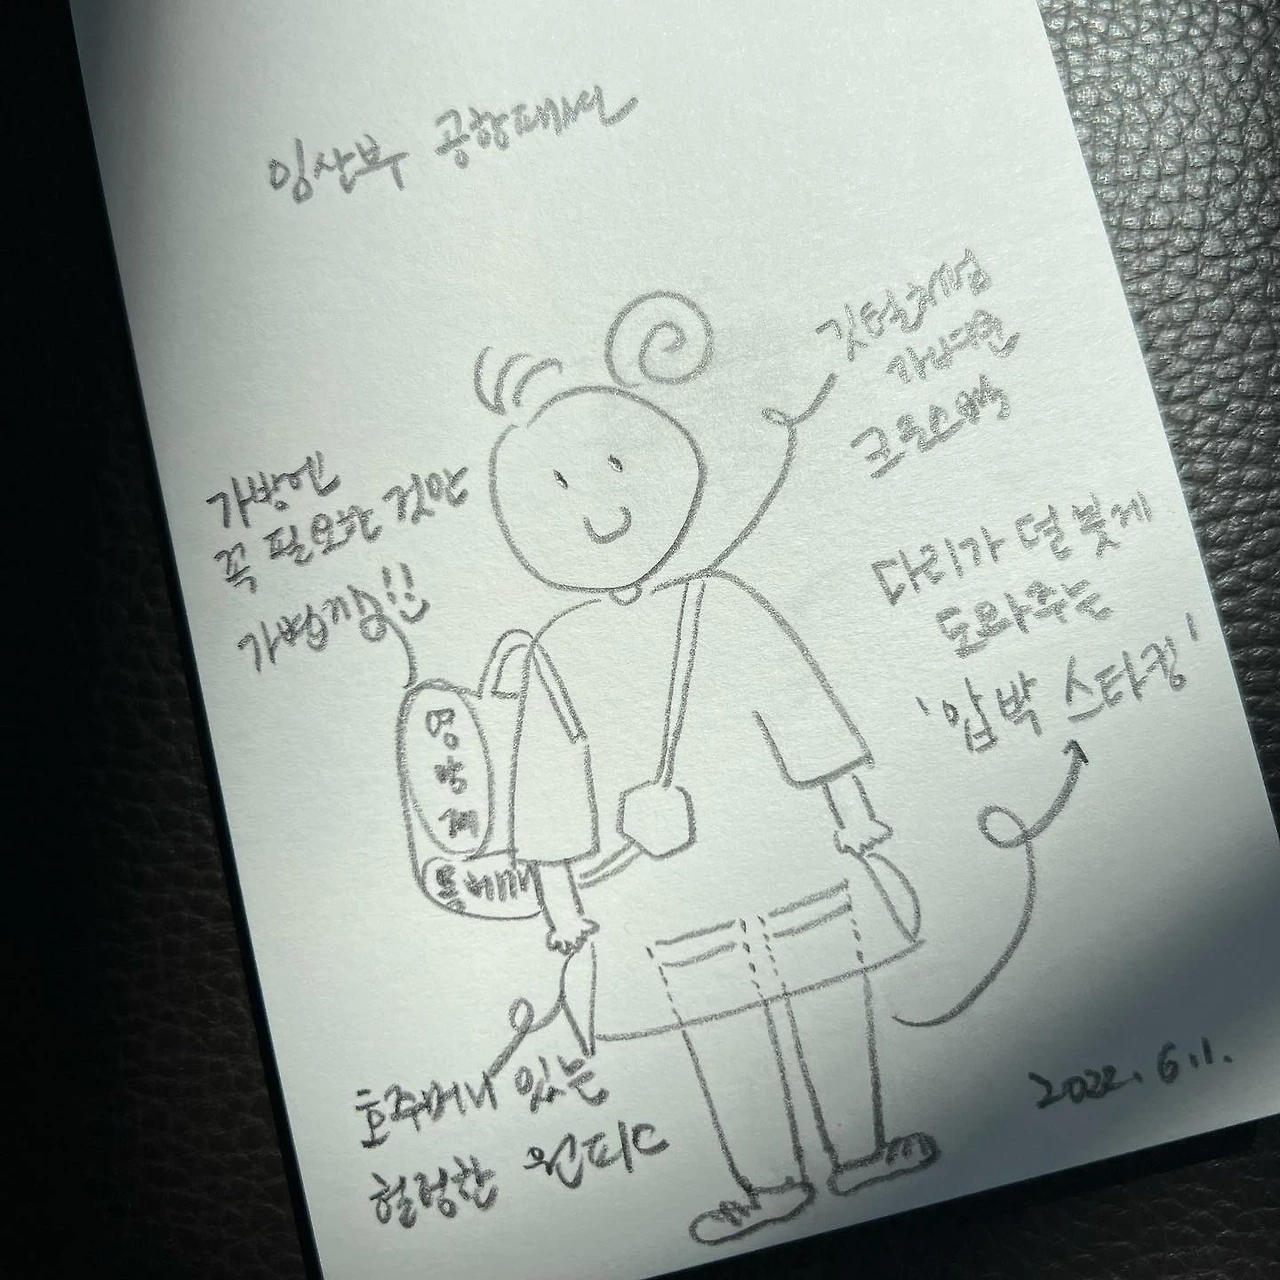 임산부 공항패션
깃털처럼
가벼운
크로스백
가방엔
꼭 필요한 것만
가볍게!!
다리가 덜 붓게
도와주는
'압박 스타킹'
영양제
호주머니 있는
헐렁한 원피스
2022. 6.1.